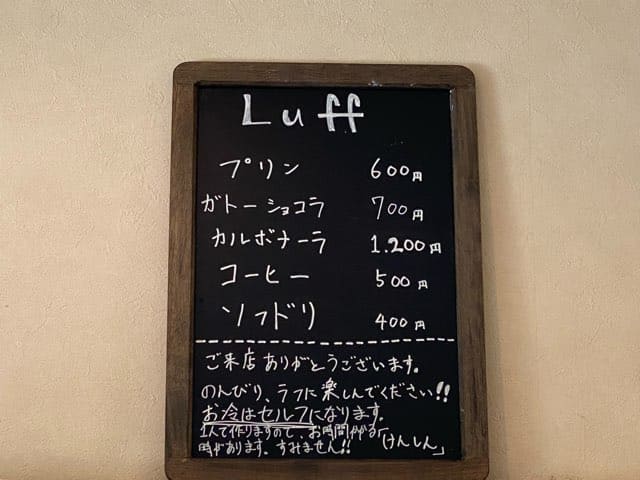 Luff
プリン 600円
ガトーショコラ 700円
カルボナーラ 1.200円
コーヒー 500円
ソフドリ 400円
ご来店ありがとうございます。
のんびり、ラフに楽しんでください!!
お冷はセルフになります。
1人で作りますので、お時間かかる
時があります。すみません!! 「けんしん」